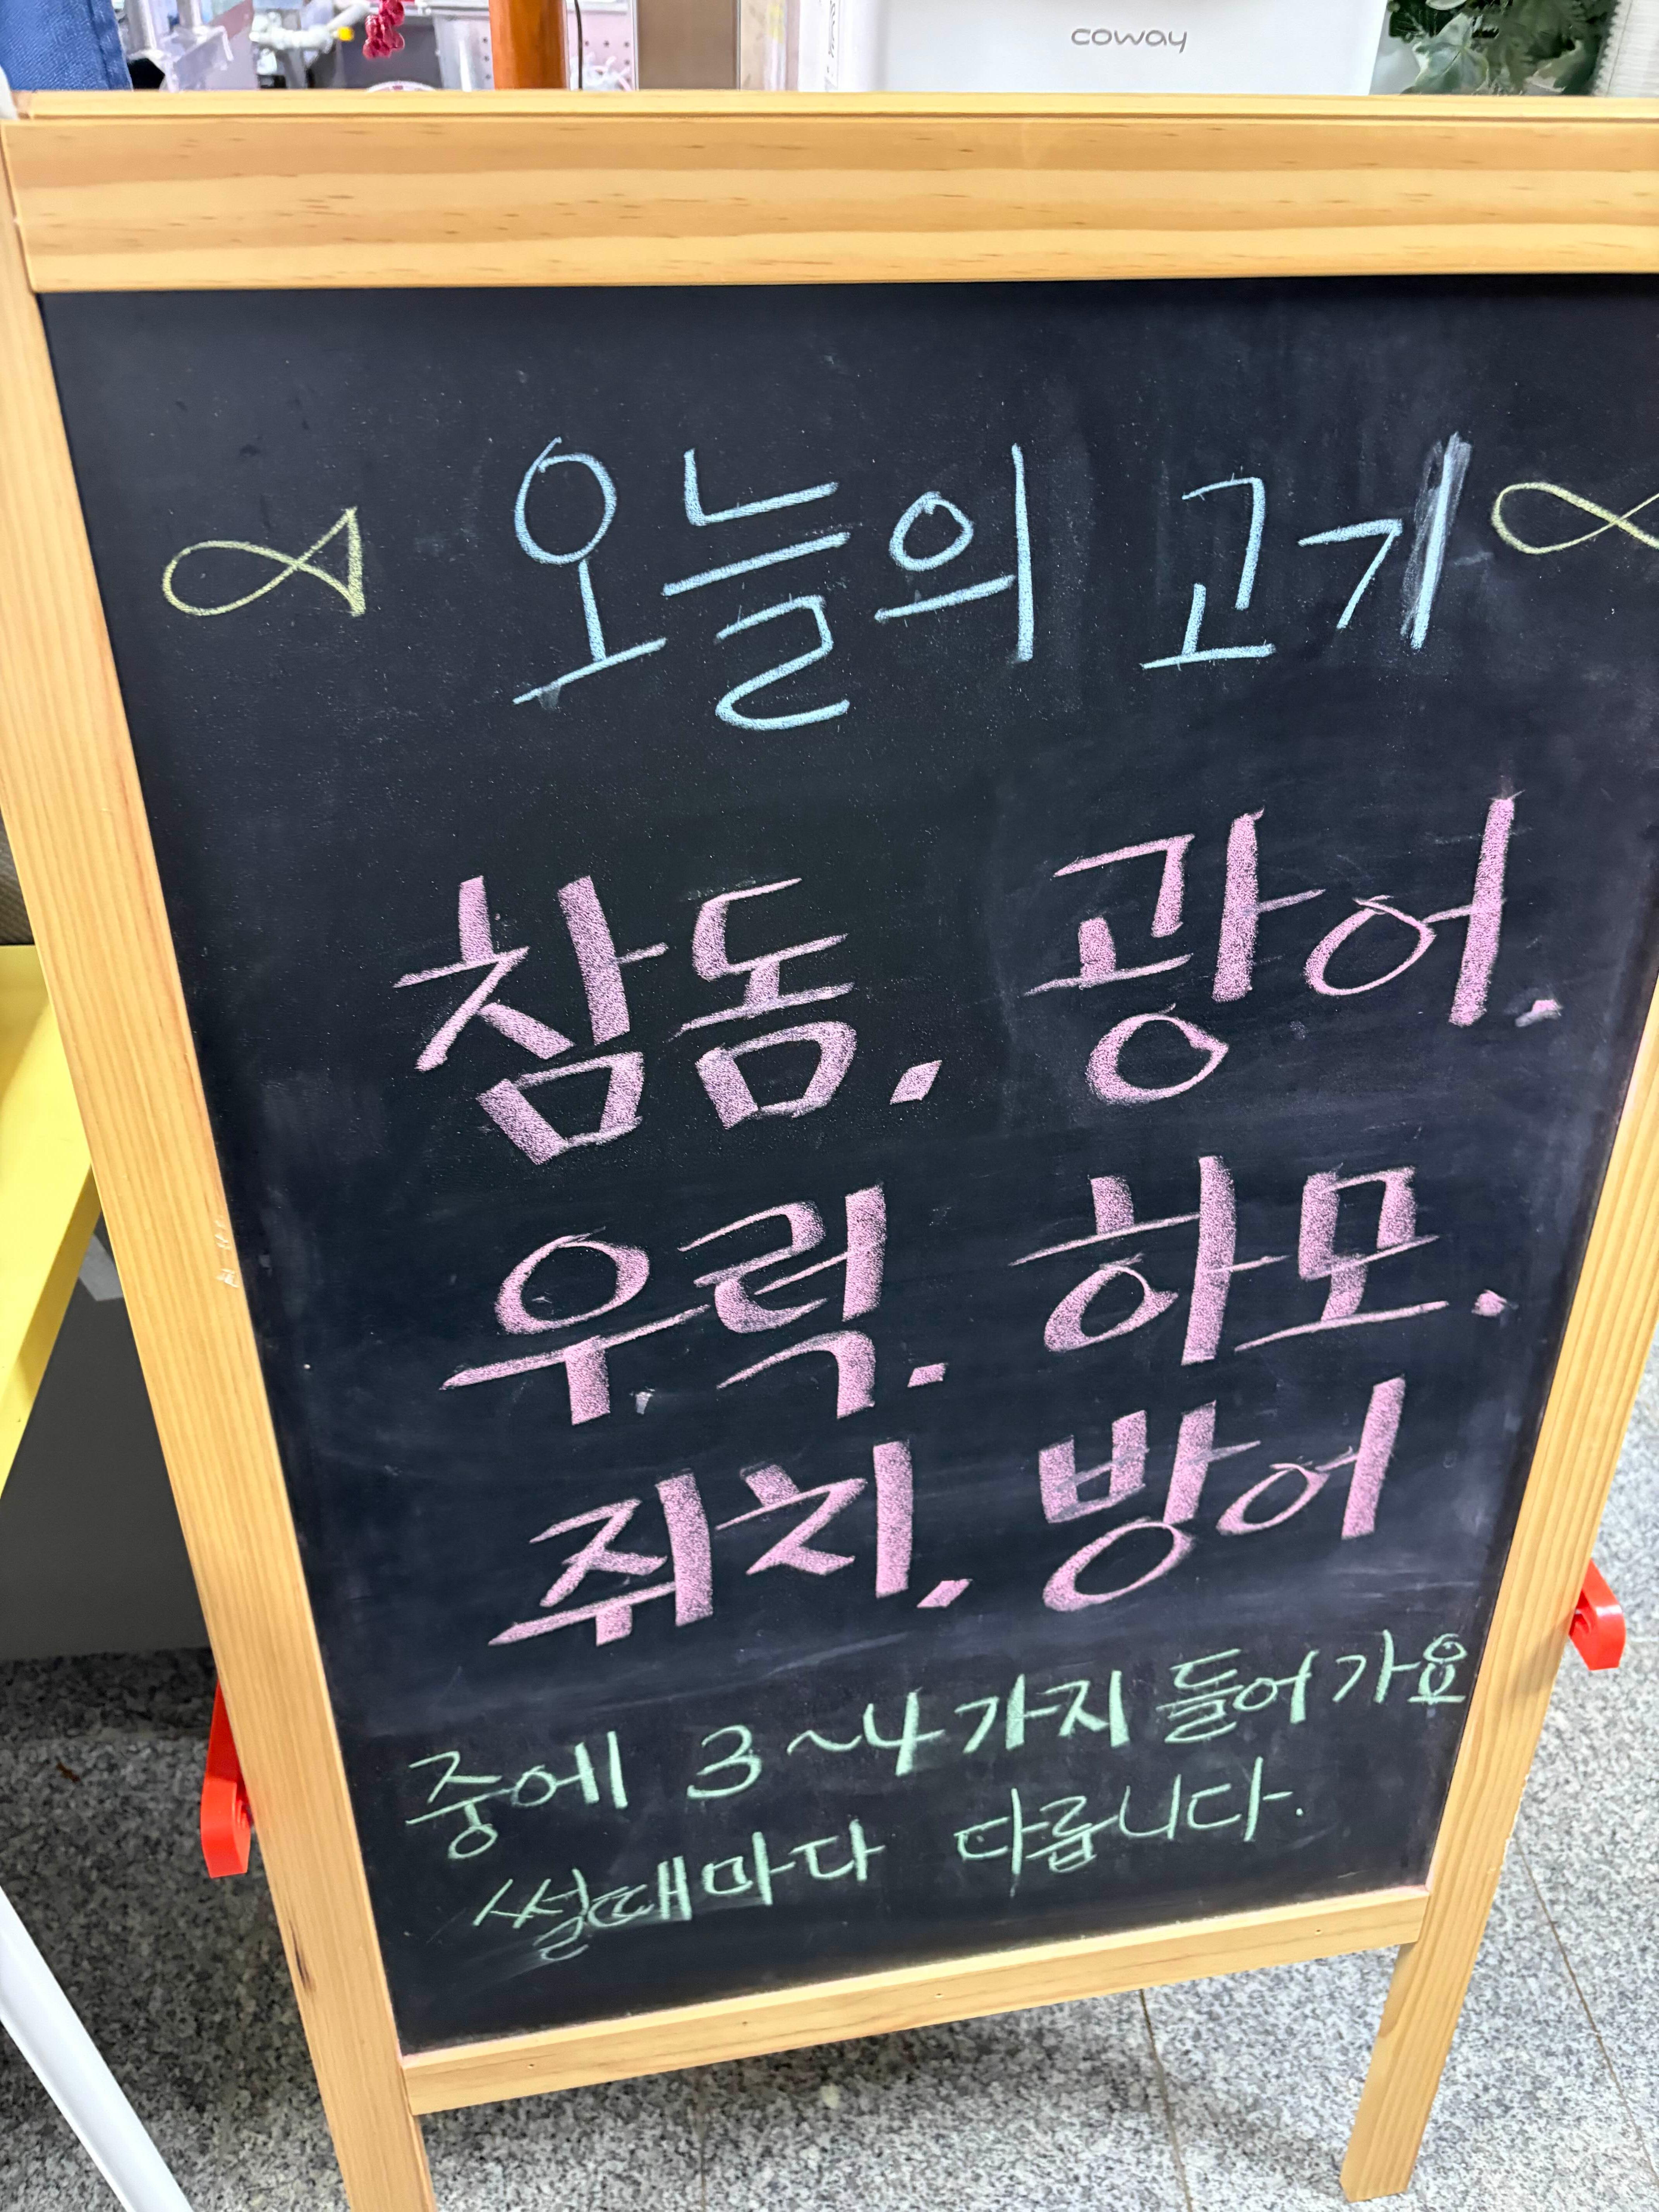 coway
오늘의 고기
참돔. 광어.
우럭. 하모.
쥐치. 방어
중에 3~4가지 들어가요
썰때마다 다릅니다.